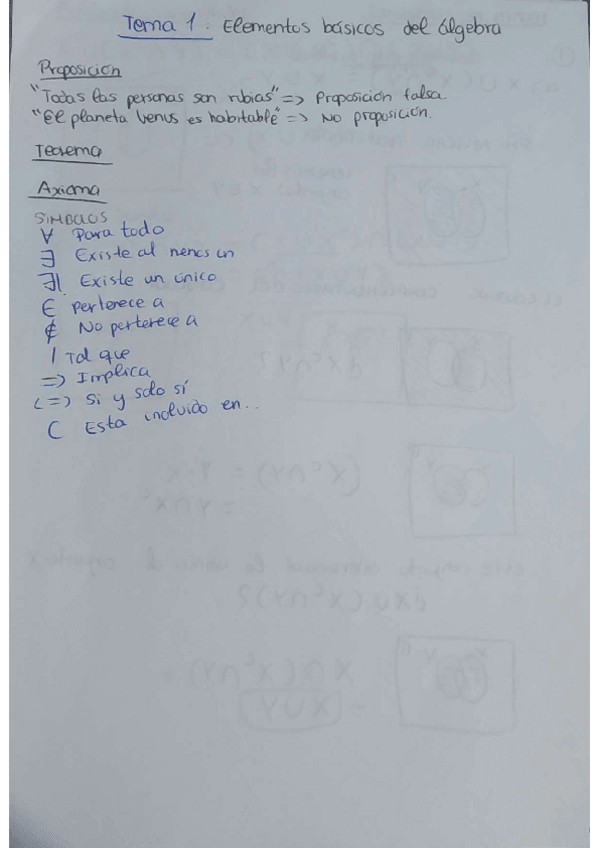 Tema 1: Elementos básicos del álgebra
Proposición
"Todas las personas son rubias" => Proposición falsa.
"El planeta Venus es habitable" => No proposición.
Teorema
Axioma
SIMBOLOS
∀ Para todo
∃ Existe al menos un
∃| Existe un único
∈ pertenece a
∉ No pertenece a
/ Tal que
=> Implica
<=> Si y solo sí
⊂ Esta incluido en...